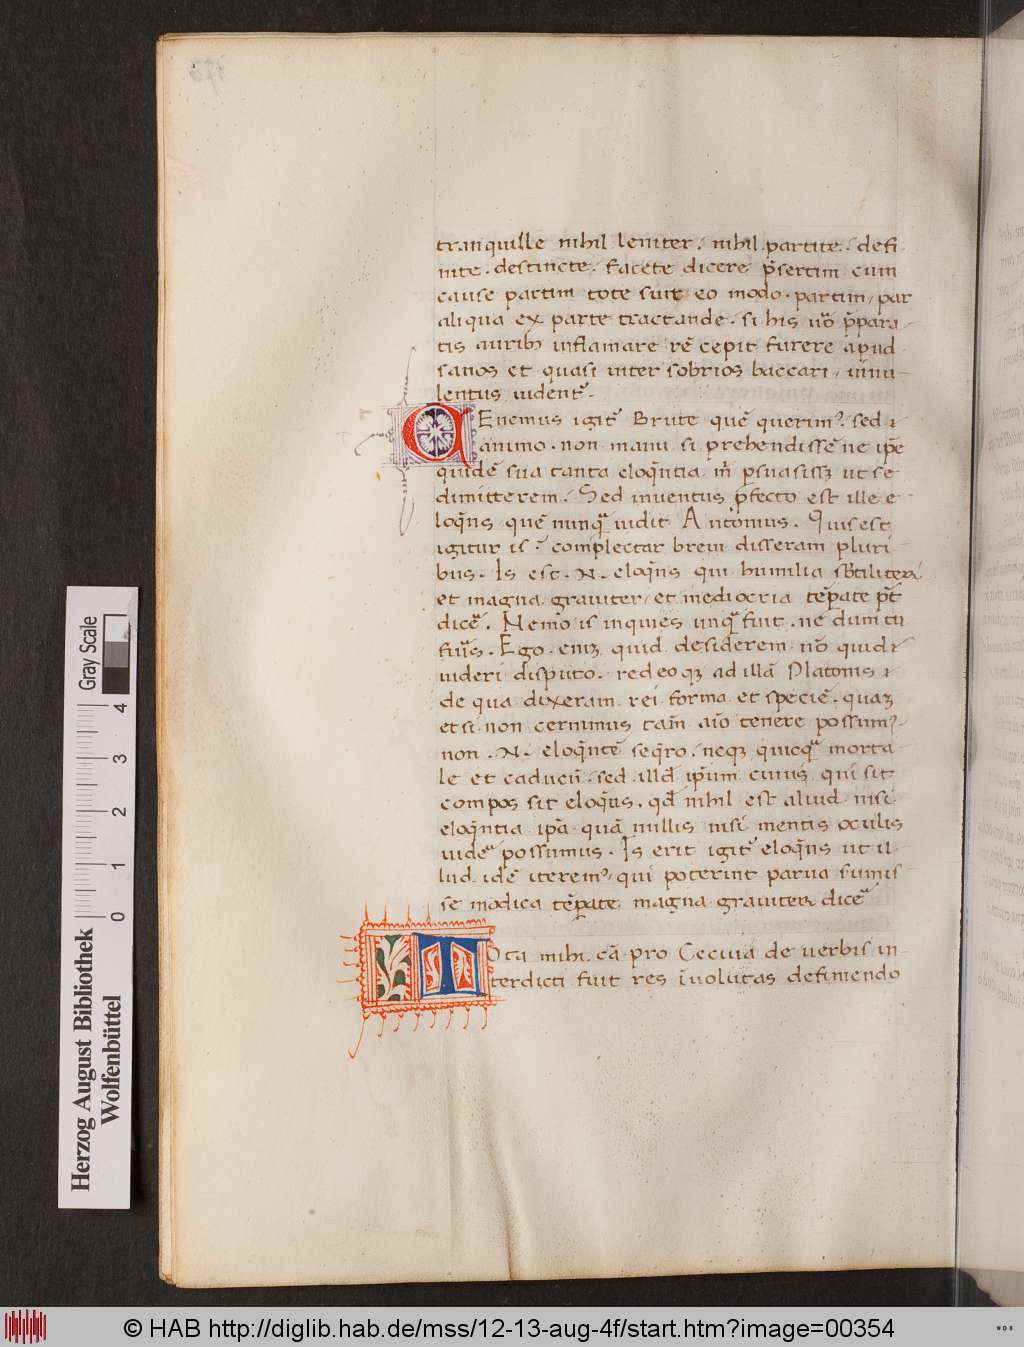 tranquille nihil leniter / nihil partite / defi
nite · destincte / facete dicere p̃sertim cum
cause partim tote sint eo modo · partim / par
aliqua ex parte tractande · si his uo̅ p̃para
tis aurib; inflamare rē cepit furere apud
sanos et quasi inter sobrios baccari / uinu
lentus uident̃ ·
TEnemus igit̃ Brute quē querim⁹ · sed ·
animo · non manu si prehendissē ne ip̄e
quidē sua tanta eloq̄ntia m̄ p̱suasissꝫ ut se
dimitterem / Sed inuentus p̱fecto est ille e
loq̄ns quē nunq̃ uidit Antonius · Quis est
igitur is · complectar breui disseram pluri
bus · Is est · N · eloq̄ns qui humilia sb̄tiliter
et magna grauiter / et mediocria tēp̱ate p̄t
dic̃e · Nemo is inquies unq̃ fuit · ne dum tu
fu̅s · Ego · enīꝫ quid desiderem nō quid ·
uideri disputo · redeoqꝫ ad illā Platonis ·
de qua dixeram rei forma et speciē · quaꝫ
et si non cernimus tam̄ aīo tenere possum⁹
non · N · eloq̄ntē seq̄ro / neqꝫ quicq̃ morta
le et caducū / sed illd̄ ip̄um cuius qui sit
compos sit eloq̄ns · qd̄ nihil est aliud nisi
eloq̄ntia ip̄a quā nullis nisi mentis oculis
uidẽ possumus · Is erit igit̃ eloq̄ns ut il
lud idē iterem⁹ / qui poterint parua sumis
se modica tēp̱ate magna grauiter dic̃e
TOta mihi cā pro Cecina de uerbis in
terdicti fuit res īuolutas definiendo
Gray Scale
4
3
2
1
0
Herzog August Bibliothek
Wolfenbüttel
© HAB http://diglib.hab.de/mss/12-13-aug-4f/start.htm?image=00354